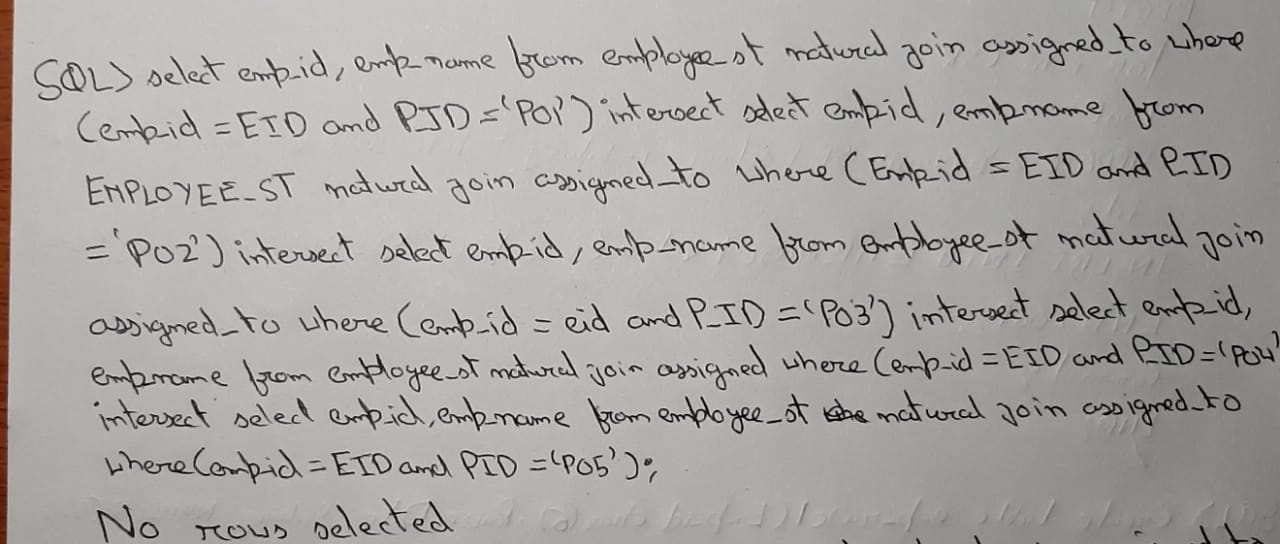 SQL> select emp_id, emp_name from employee_st natural join assigned_to where
(emp_id = EID and P_ID = 'P01') intersect select emp_id, emp_name from
EMPLOYEE_ST natural join assigned_to where (Emp_id = EID and P_ID
= 'P02') intersect select emp_id, emp_name from employee_st natural join
assigned_to where (emp_id = eid and P_ID = 'P03') intersect select emp_id,
emp_name from employee_st natural join assigned where (emp_id = EID and P_ID = 'P04'
intersect select emp_id, emp_name from employee_st natural join assigned_to
where (emp_id = EID and PID = 'P05');
No rows selected